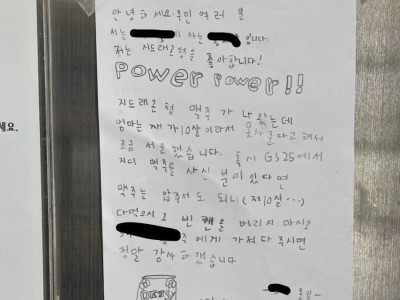 안녕하세요. 주민 여러분
저는 사는 입니다
저는 지드래곤형을 좋아합니다!
POWER POWER!!
지드래곤형 맥주가 나왔는데
엄마는 제가 10살이라서 못사준다고 해서
조금 서운했습니다. 혹시 GS25에서
지디 맥주를 사신 분이 있다면
맥주는 안주셔도 되니 (제10살…)
다 먹으시고 빈 캔을 버리지 마시고
에게 가져다 주시면
정말 감사하겠습니다
세요.